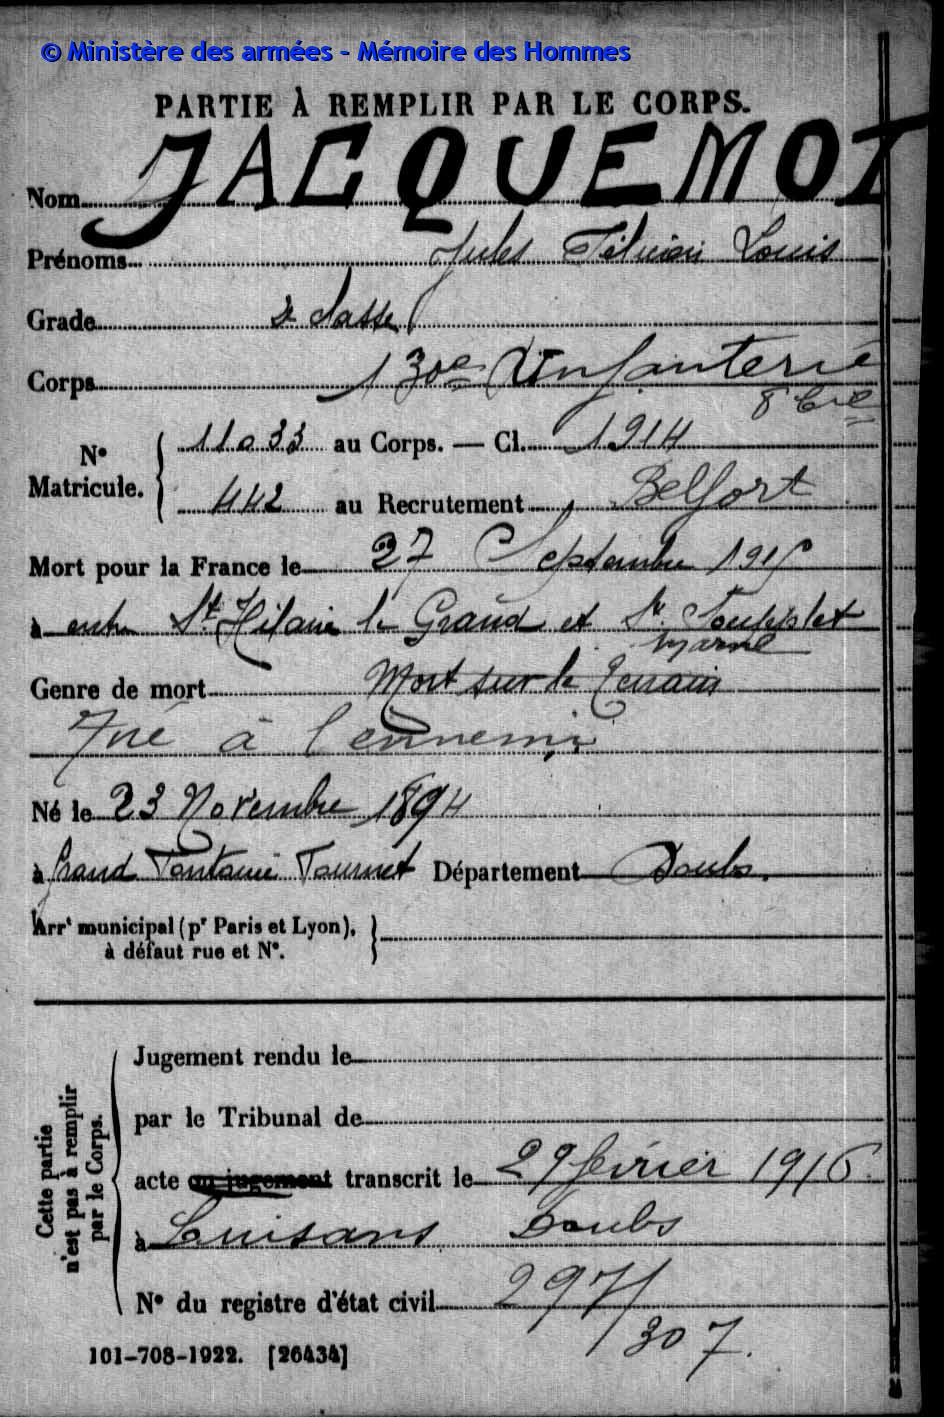 © Ministère des armées - Mémoire des Hommes
PARTIE À REMPLIR PAR LE CORPS.
Nom JACQUEMOT
Prénoms Jules Louis
Grade 2e classe
Corps 130e d'Infanterie
8e Cie
N° Matricule. 11033 au Corps. — Cl. 1914
442 au Recrutement Belfort
Mort pour la France le 27 Septembre 1915
à entre St Hilaire le Grand et St Soupplet
Marne
Genre de mort Mort sur le Terrain
Tué à l'ennemi
Né le 23 Novembre 1894
à Grand Fontaine Fournet Département Doubs.
Arrt municipal (pr Paris et Lyon),
à défaut rue et N°.
Cette partie n'est pas à remplir par le Corps.
Jugement rendu le
par le Tribunal de
acte ou jugement transcrit le 29 février 1916.
à Luisans Doubs
N° du registre d'état civil 297/
307.
101-708-1922. [26434]